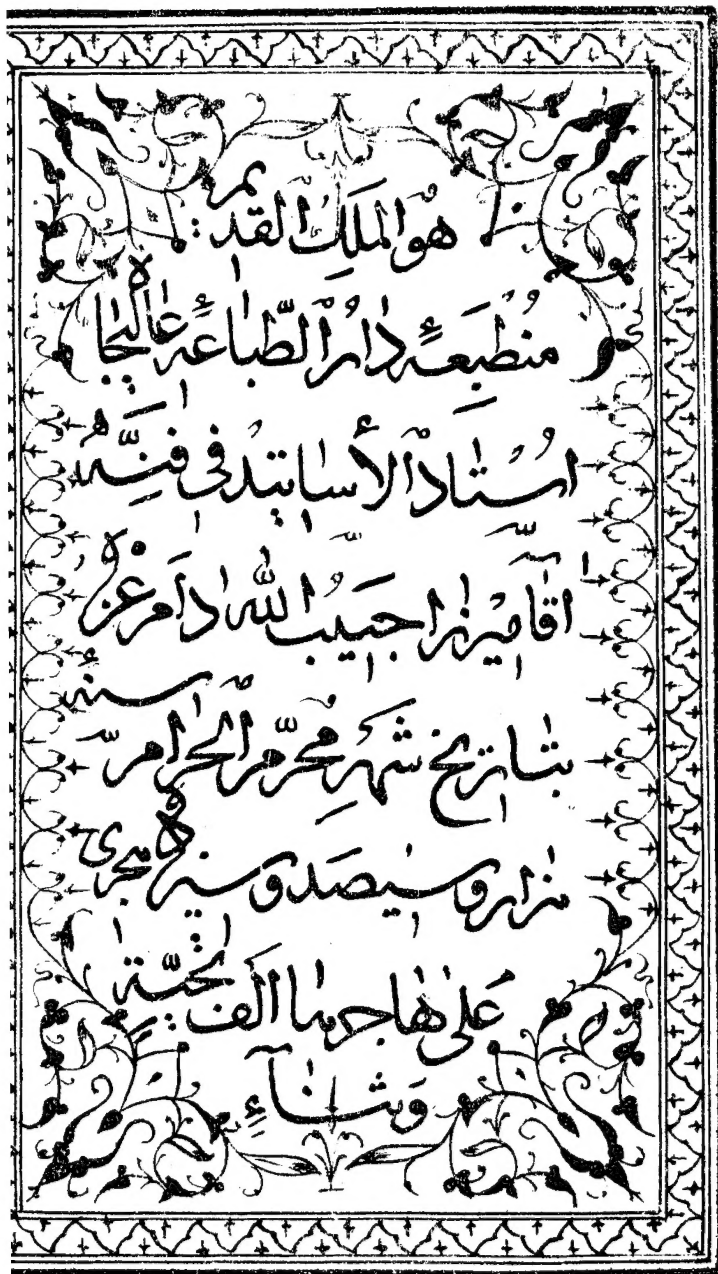 هُوَ الْمَلِكُ الْقَدیم
مُنْطَبِعَهٔ دارُ الطِّباعَهٔ عالیجاه
اُسْتادُ الْأساتید فی فَنِّه
آقا میرزا حَبیبُ الله دامَ عِزُّه
بتاریخ شَهْرِ مُحَرَّمِ الْحَرامِ سنهٔ
هزار و سیصد و سیزده هجری
عَلی هاجرها اَلف التَّحِیَّةِ
وَ ثَناءٍ